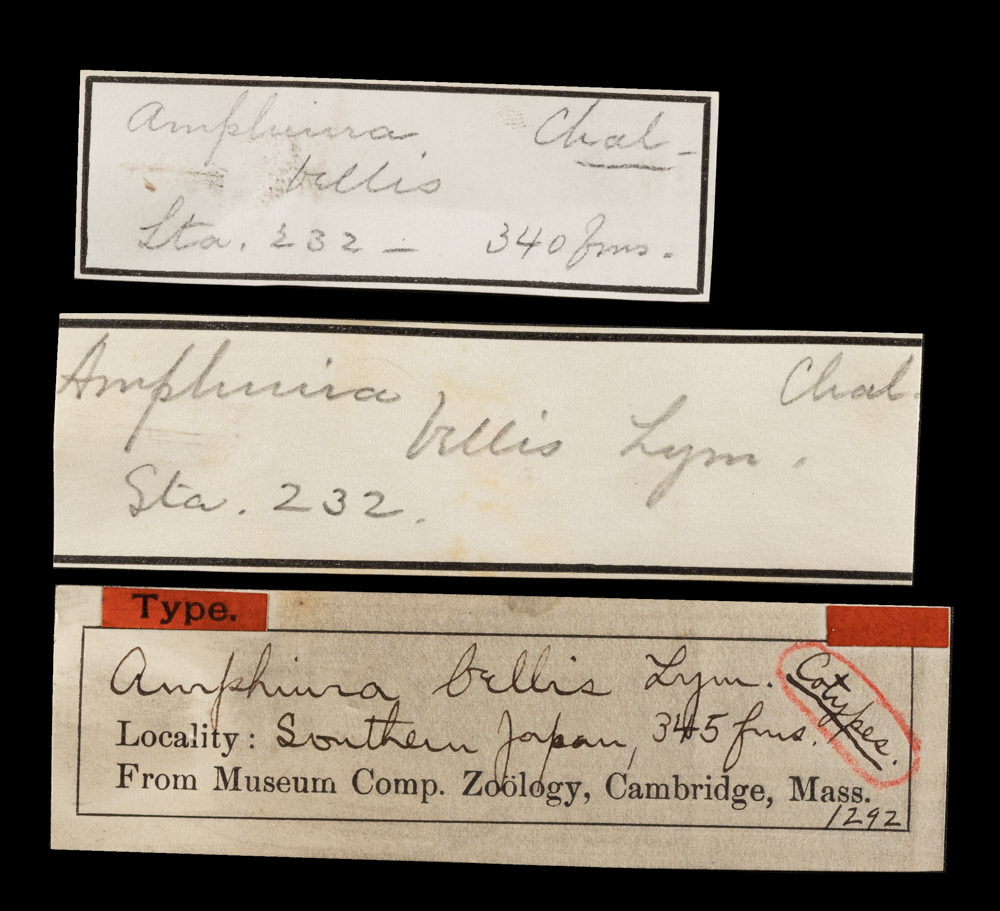 Amphiura Chal-
bellis
Sta. 232 — 340 fms.
Amphiura Chal.
bellis Lym.
Sta. 232.
Type.
Amphiura bellis Lym. Cotypes.
Locality: Southern Japan, 345 fms.
From Museum Comp. Zoölogy, Cambridge, Mass.
1292